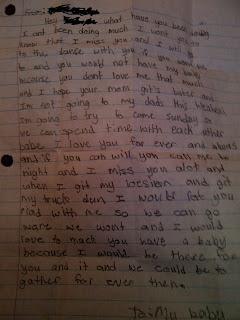 From:
Hey what have you been doing
I ant been doing much I want you to
know that I miss you and I will go
to the dance with you if you want
me and you would not have my baby
because you dont love me that much
and I hope your mom git's better and
Im not going to my dads this weaken
Im going to try to come sunday so
we can spend time with each other
babe I love you for ever and always
and if you can will you call me to
night and I miss you alot and
when I git my licesion and git
my truck dun I would let you
rlad with me so we can go
ware we wont and I would
love to mack you have a baby
because I would be there for
you and it and we could be to
gather for ever then.
To: My baby